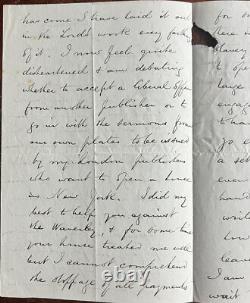 has come I have laid it out
in the Lord's work every farthing
of it. I now feel quite
disheartened & am debating
whether to accept a liberal offer
from another publisher or to
go in with the sermons from
our own plates to be issued
by my London publishers
who want to open a house
in New York. I did my
best to help you against
the Waverley, & for some time
your house treated me well
but I cannot comprehend
the stoppage of all payments
for
so
slavery
to
off
large
enough
a set
even
hand
write
line
leave
I am
wait